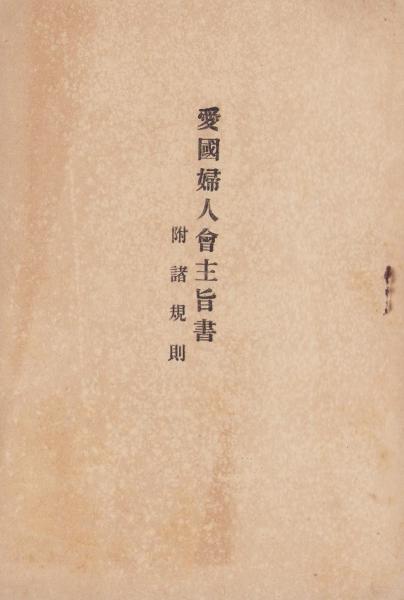 愛國婦人會主旨書
附諸規則